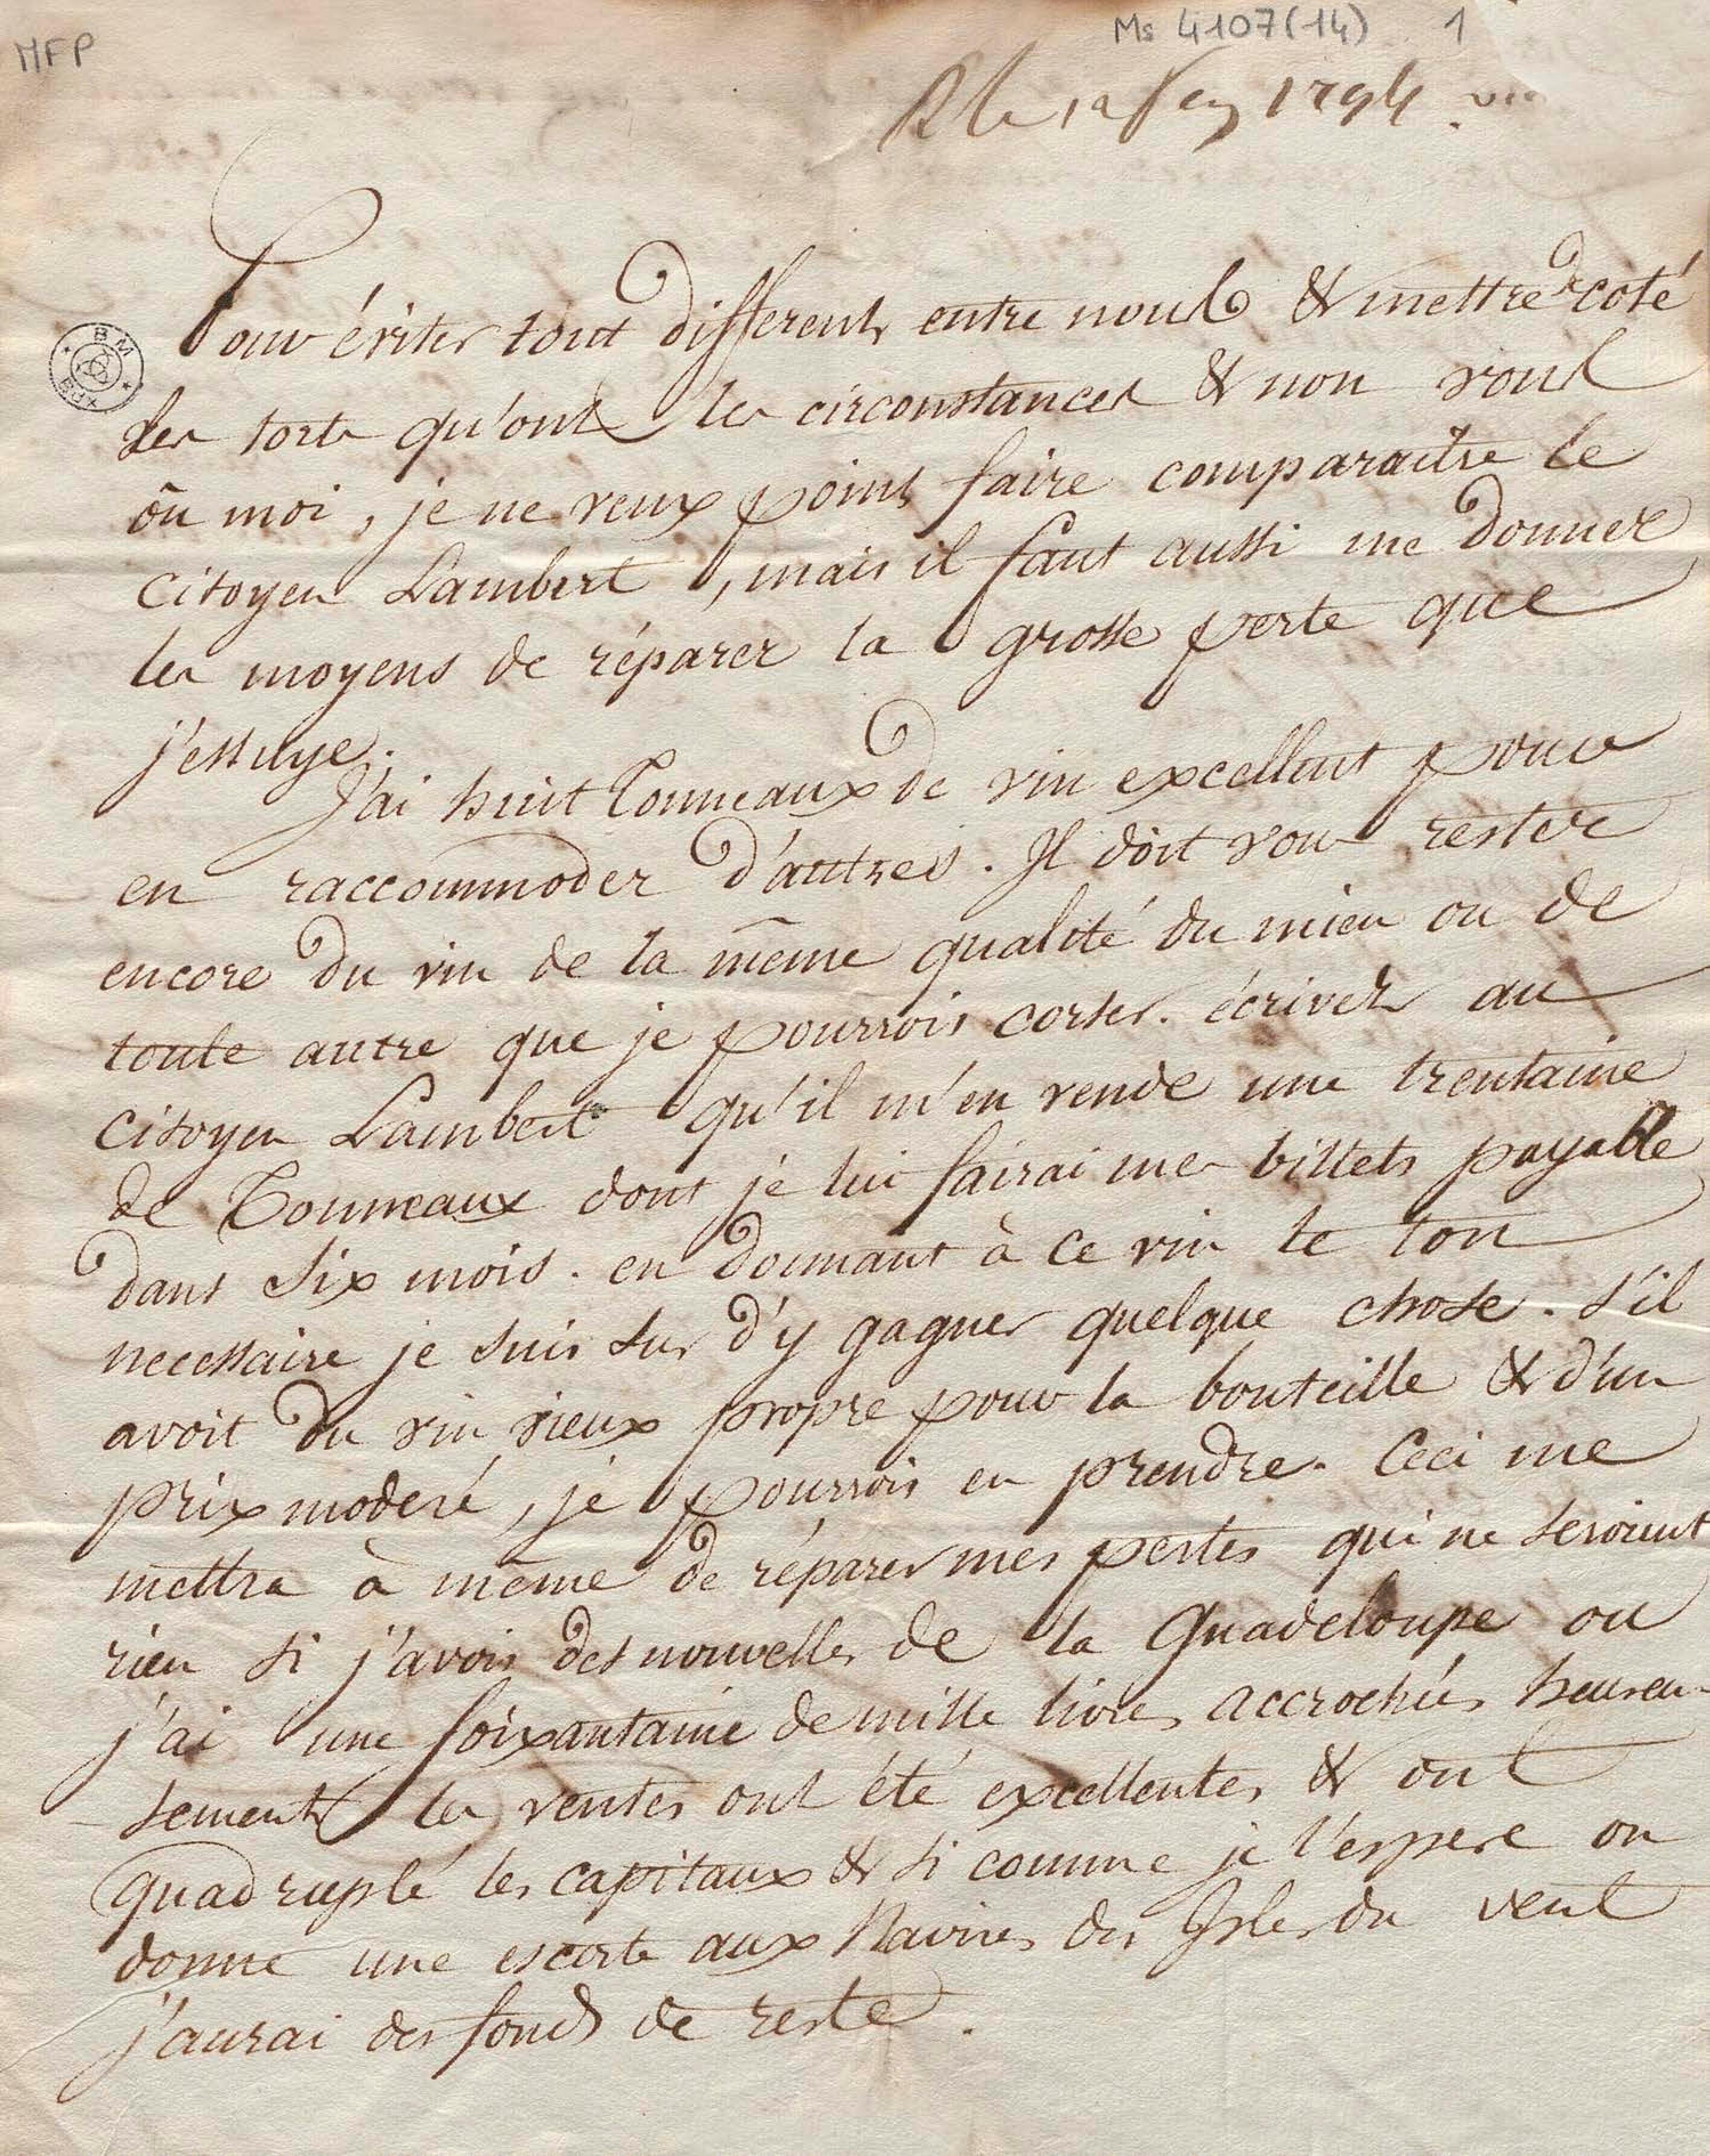 MFP
Ms 4107(14) 1
R le 12 1794
Pour éviter tout different entre nous & mettre de coté
les torts qu'ont les circonstances & non vous
ou moi, je ne veux point faire comparaitre le
citoyen Lambert, mais il faut aussi me donner
les moyens de réparer la grosse perte que
j'essuye.
J'ai huit Tonneaux de vin excellent pour
en raccommoder d'autres. Il doit vous rester
encore du vin de la même qualité du mien ou de
toute autre que je pourrois corser. écrivez au
citoyen Lambert qu'il m'en vende une trentaine
de Tonneaux dont je lui fairai mes billets payable
dans six mois. en donnant à ce vin le ton
necessaire je suis sur d'y gagner quelque chose. s'il
avoit du vin vieux propre pour la bouteille & d'un
prix moderé, je pourrois en prendre. Ceci me
mettra à même de réparer mes pertes qui ne seroient
rien si j'avois des nouvelles de la Guadeloupe ou
j'ai une soixantaine de mille livres accrochés heureu-
-sement les ventes ont été excellentes & ont
quadruplé les capitaux & si comme je l'espere on
donne une escorte aux Navires des Isles du vent
j'aurai des fonds de reste.
BM
BUX